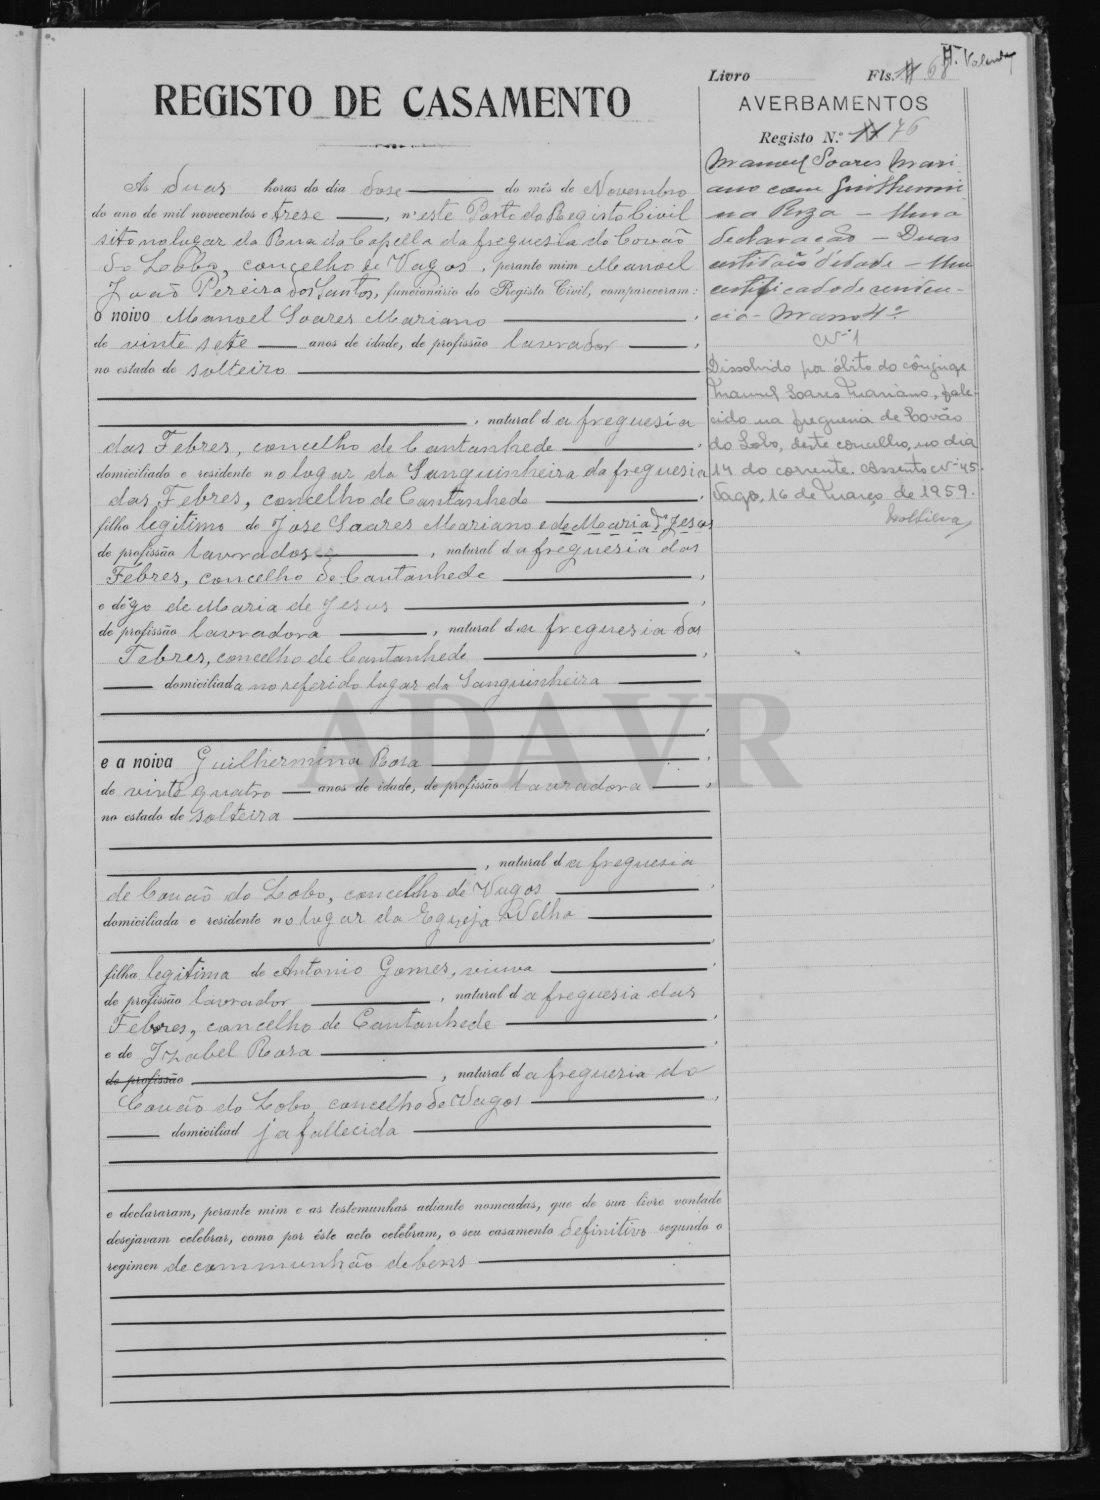 Livro Fls. 11 68
REGISTO DE CASAMENTO
AVERBAMENTOS
Registo N.º 11 76
Ás duas horas do dia dose do mês de Novembro
do ano de mil novecentos e trese, n'este Posto do Registo Civil
sito no lugar da Rua da Capella da freguesia do Covão
do Lobo, concelho de Vagos, perante mim Manoel
João Pereira dos Santos, funcionário do Registo Civil, compareceram:
o noivo Manoel Soares Mariano,
de vinte sete anos de idade, de profissão lavrador,
no estado de solteiro
, natural da freguesia
das Febres, concelho de Cantanhede,
domiciliado e residente no logar da Sanguinheira da freguesia
das Febres, concelho de Cantanhede,
filho legitimo de Jose Soares Mariano e de Maria de Jesus
de profissão lavrador, natural da freguesia das
Febres, concelho de Cantanhede,
e dégo de Maria de Jesus,
de profissão lavradora, natural da freguesia das
Febres, concelho de Cantanhede,
domiciliada no referido lugar da Sanguinheira
,
e a noiva Guilhermina Rosa,
de vinte quatro anos de idade, de profissão lavradora,
no estado de solteira
, natural da freguesia
de Covão do Lobo, concelho de Vagos,
domiciliada e residente no lugar da Egreja Velha
,
filha legitima de Antonio Gomes, viuvo,
de profissão lavrador, natural da freguesia das
Febres, concelho de Cantanhede,
e de Izabel Rosa,
de profissão, natural da freguezia do
Covão do Lobo, concelho de Vagos,
domiciliad ja fallecida
e declararam, perante mim e as testemunhas adiante nomeadas, que de sua livre vontade
desejavam celebrar, como por êste acto celebram, o seu casamento definitivo segundo o
regimen de communhão de bens
Manoel Soares Mari-
ano com Guilhermi-
na Roza – Uma
declaração – Duas
certidões d'edade – Um
certificado de residen-
cia – Masso 4º
Nº 1
Dissolvido por óbito do cônjuge
Manuel Soares Mariano, fale-
cido na freguesia de Covão
do Lobo, deste concelho, no dia
14 do corrente. Assento Nº 45.
Vagos, 16 de Março de 1959.
ADAVR